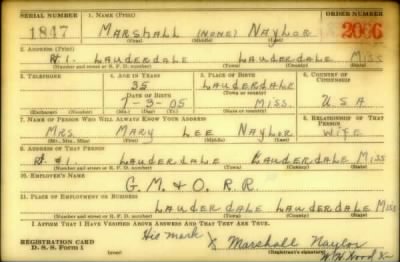 SERIAL NUMBER 1. NAME (Print) ORDER NUMBER
1847 MARSHALL (NONE) NAYLOR 2066
(First) (Middle) (Last)
2. ADDRESS (Print)
#1. LAUDERDALE LAUDERDALE MISS
(Number and street or R. F. D. number) (Town) (County) (State)
3. TELEPHONE 4. AGE IN YEARS 5. PLACE OF BIRTH 6. COUNTRY OF CITIZENSHIP
35 LAUDERDALE
DATE OF BIRTH (Town or county)
7-3-05 MISS. U.S.A
(Exchange) (Number) (Mo.) (Day) (Yr.) (State or country)
7. NAME OF PERSON WHO WILL ALWAYS KNOW YOUR ADDRESS 8. RELATIONSHIP OF THAT PERSON
MRS. MARY LEE NAYLOR WIFE
(Mr., Mrs., Miss) (First) (Middle) (Last)
9. ADDRESS OF THAT PERSON
R #1 LAUDERDALE LAUDERDALE MISS
(Number and street or R. F. D. number) (Town) (County) (State)
10. EMPLOYER'S NAME
G. M. & O. R. R.
11. PLACE OF EMPLOYMENT OR BUSINESS
LAUDERDALE LAUDERDALE MISS
(Number and street or R. F. D. number) (Town) (County) (State)
I AFFIRM THAT I HAVE VERIFIED ABOVE ANSWERS AND THAT THEY ARE TRUE.
REGISTRATION CARD His mark X Marshall Naylor
D. S. S. Form 1 (Registrant's signature) W. H. Hood